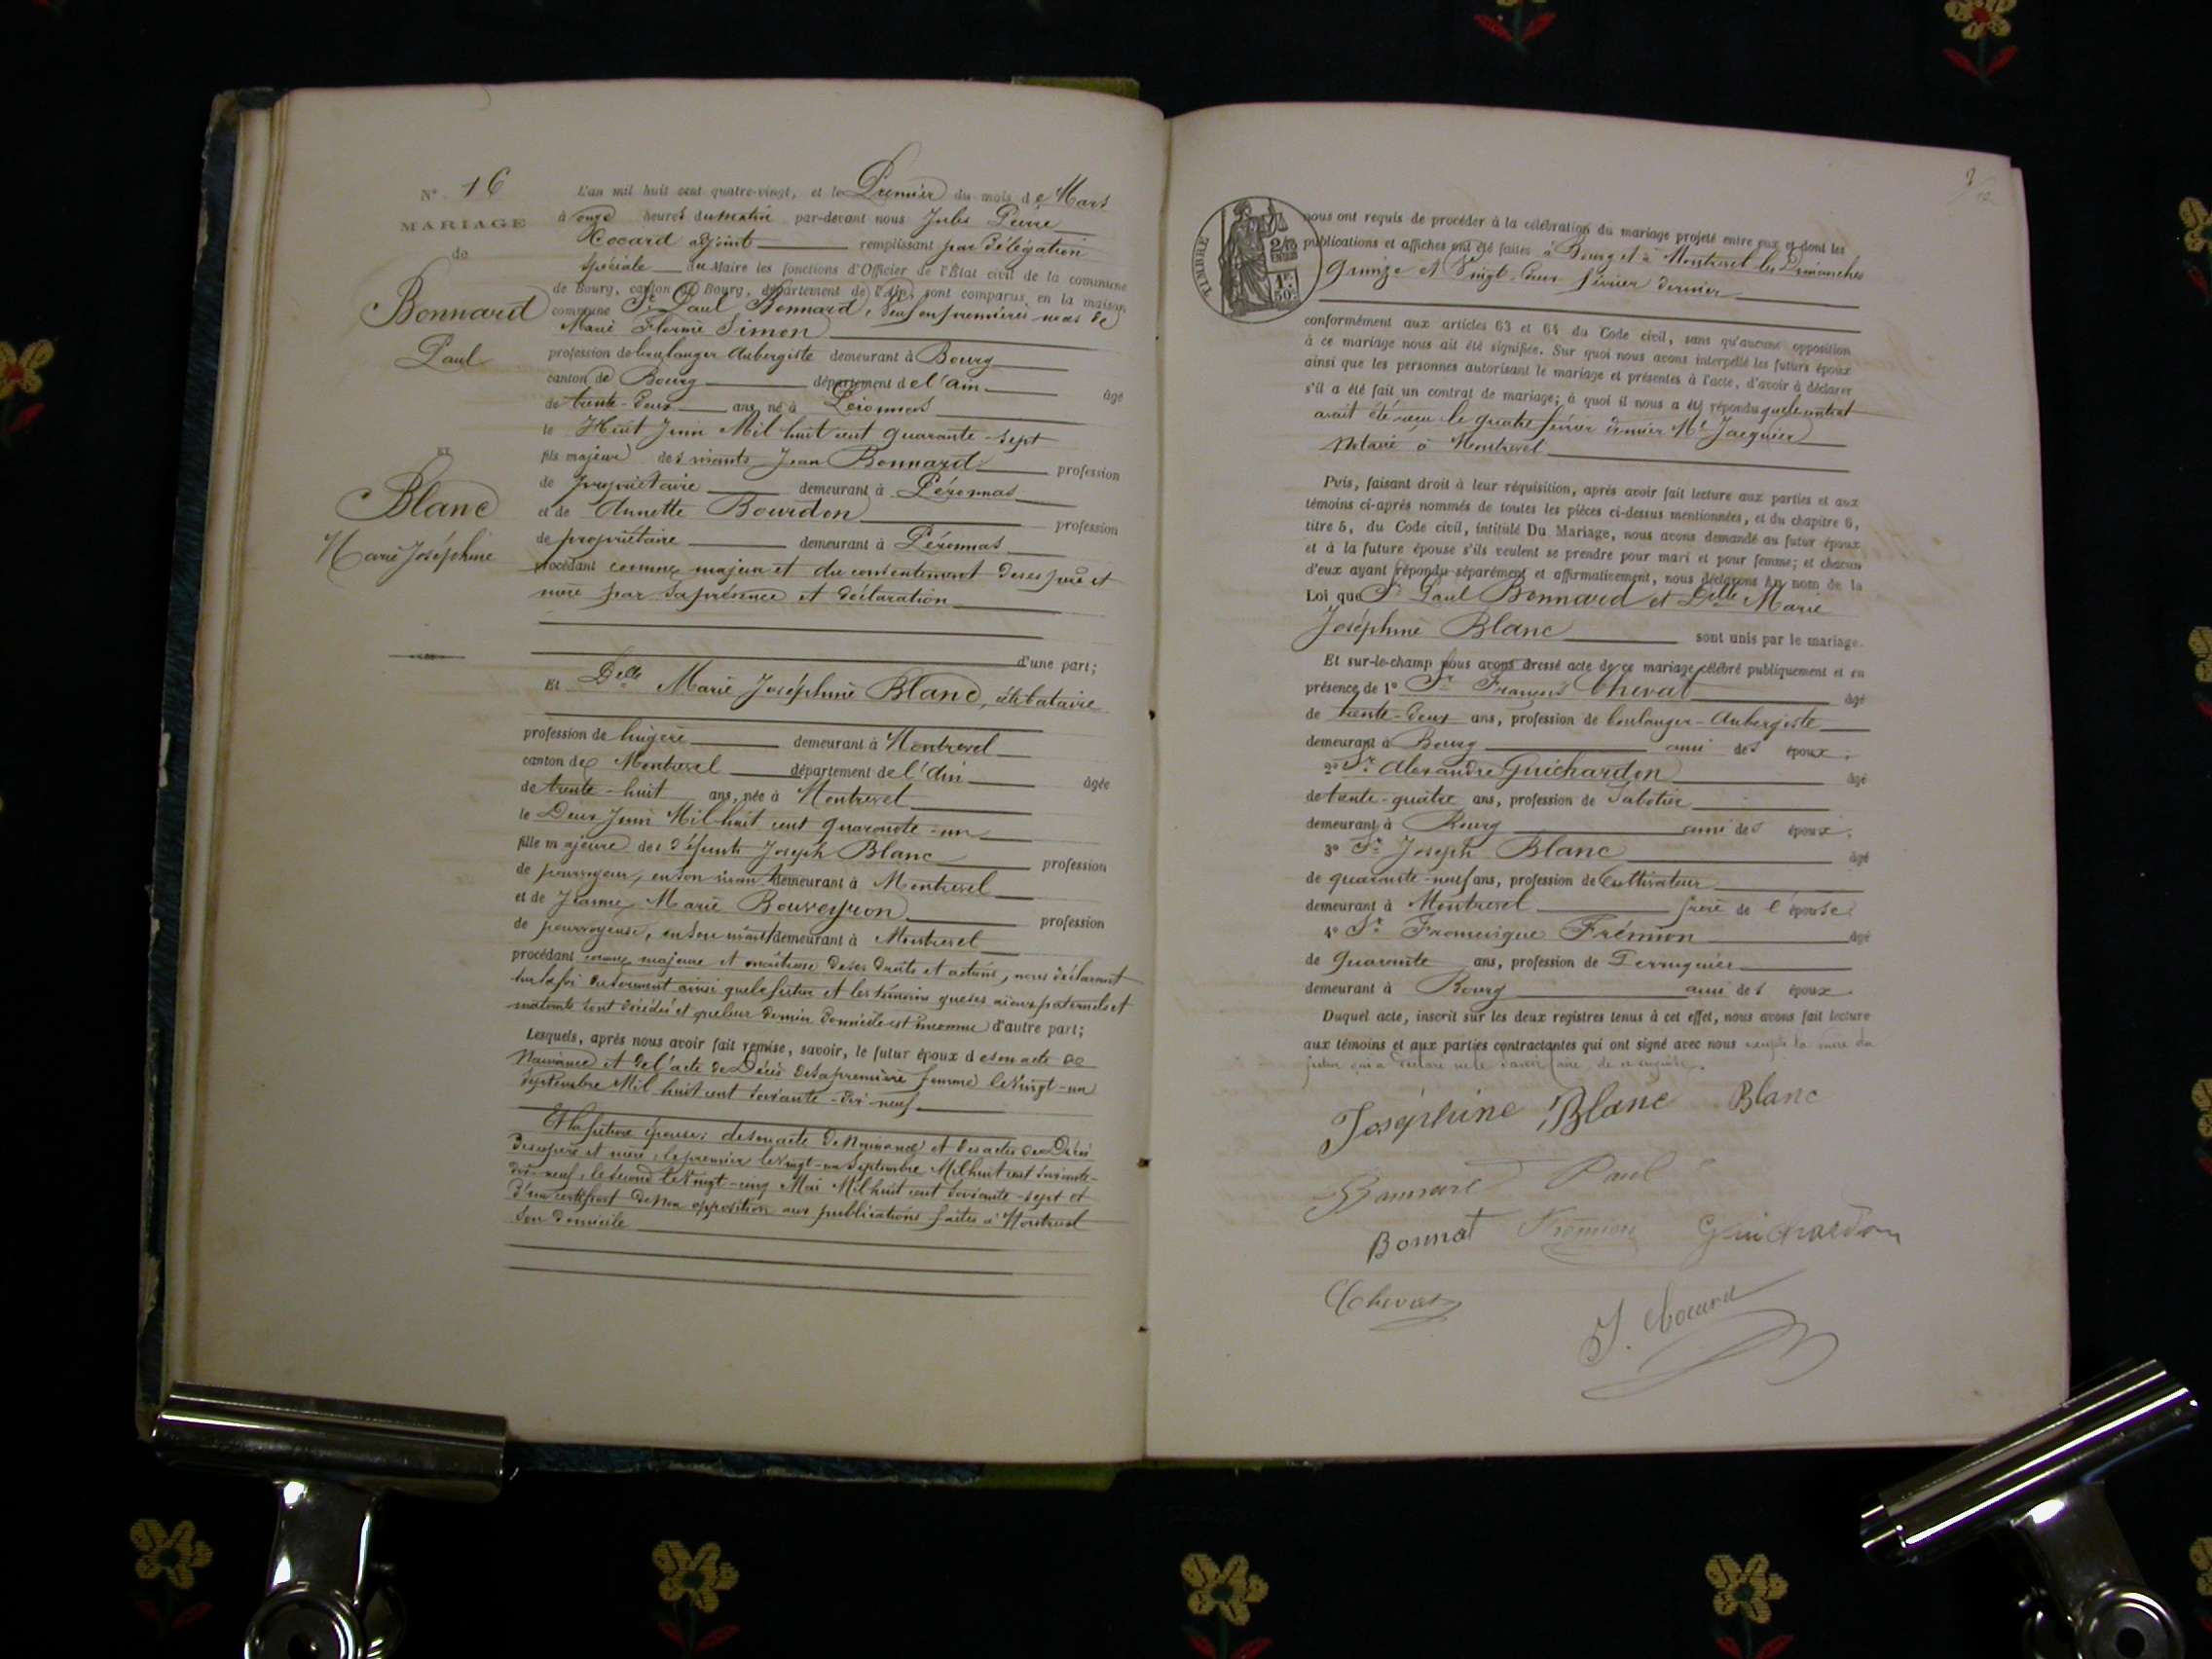 N° 16
MARIAGE
de
Bonnard
Paul
ET
Blanc
Marie Joséphine
L'an mil huit cent quatre-vingt, et le Premier du mois de Mars
à onze heures du matin par-devant nous Jules Pierre
Cocard adjoint remplissant par délégation
spéciale du Maire les fonctions d'Officier de l'État civil de la commune
de Bourg, canton de Bourg, département de l'Ain, sont comparus en la maison
commune Sr Paul Bonnard, Veuf en premières noces de
Marie Florine Simon
profession de boulanger Aubergiste demeurant à Bourg
canton de Bourg département de l'ain âgé
de trente-deux ans, né à Péronnas
le Huit Juin Mil huit cent quarante-sept
fils majeur des vivants Jean Bonnard profession
de propriétaire demeurant à Péronnas
et de Annette Bourdon profession
de propriétaire demeurant à Péronnas
procédant comme majeur et du consentement de ses père et
mère par sa présence et déclaration
d'une part;
Et Delle Marie Joséphine Blanc, célibataire
profession de lingère demeurant à Montrevel
canton de Montrevel département de l'Ain âgée
de trente-huit ans, née à Montrevel
le Deux Juin Mil huit cent quarante-un
fille majeure des défunts Joseph Blanc profession
de pourvoyeur, en son vivant demeurant à Montrevel
et de Jeanne Marie Bouveyron profession
de pourvoyeuse, en son vivant demeurant à Montrevel
procédant comme majeure et maîtresse de ses droits et actions, nous déclarant
sur la foi du serment ainsi que le futur et les témoins que ses aïeux paternels et
maternels sont décédés et que leur dernier domicile est inconnu d'autre part;
Lesquels, après nous avoir fait remise, savoir, le futur époux de son acte de
Naissance et de l'acte de Décès de sa première femme le Vingt-un
septembre Mil huit cent soixante-dix-neuf
Et la future épouse: de son acte de Naissance et des actes de Décès
de ses père et mère, le premier le Vingt-un Septembre Mil huit cent soixante-
dix-neuf, le second le Vingt-cinq Mai Mil huit cent soixante-sept et
d'un certificat de non opposition aux publications faites à Montrevel
son domicile
TIMBRE
2/10
EN SUS
1F.
50C.
nous ont requis de procéder à la célébration du mariage projeté entre eux et dont les
publications et affiches ont été faites à Bourg et à Montrevel les Dimanches
Quinze et Vingt-deux février dernier
conformément aux articles 63 et 64 du Code civil, sans qu'aucune opposition
à ce mariage nous ait été signifiée. Sur quoi nous avons interpellé les futurs époux
ainsi que les personnes autorisant le mariage et présentes à l'acte, d'avoir à déclarer
s'il a été fait un contrat de mariage; à quoi il nous a été répondu que le contrat
avait été reçu le quatre février dernier Me Jacquier
Notaire à Montrevel
Puis, faisant droit à leur réquisition, après avoir fait lecture aux parties et aux
témoins ci-après nommés de toutes les pièces ci-dessus mentionnées, et du chapitre 6,
titre 5, du Code civil, intitulé Du Mariage, nous avons demandé au futur époux
et à la future épouse s'ils veulent se prendre pour mari et pour femme; et chacun
d'eux ayant répondu séparément et affirmativement, nous déclarons au nom de la
Loi que Sr Paul Bonnard et Delle Marie
Joséphine Blanc sont unis par le mariage.
Et sur-le-champ nous avons dressé acte de ce mariage célébré publiquement et en
présence de 1° Sr François Chevat âgé
de trente-deux ans, profession de boulanger-Aubergiste
demeurant à Bourg ami des époux;
2° Sr Alexandre Guichardon âgé
de trente-quatre ans, profession de Sabotier
demeurant à Bourg ami des époux;
3° Sr Joseph Blanc âgé
de quarante-neuf ans, profession de Cultivateur
demeurant à Montrevel frère de l'épouse
4° Sr Frémion âgé
de Quarante ans, profession de Perruquier
demeurant à Bourg ami des époux
Duquel acte, inscrit sur les deux registres tenus à cet effet, nous avons fait lecture
aux témoins et aux parties contractantes qui ont signé avec nous excepté la mère du
futur qui a déclaré ne le savoir faire de ce enquise.
Joséphine Blanc Blanc
Bonnard Paul
Bonnat Frémion Guichardon
Chevat
J. Cocard